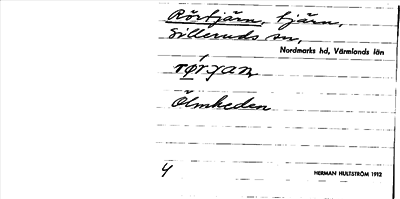 Rörtjärn, tjärn,
Silleruds sn,
Nordmarks hd, Värmlands län
Ölmheden
4
HERMAN HULTSTRÖM 1912